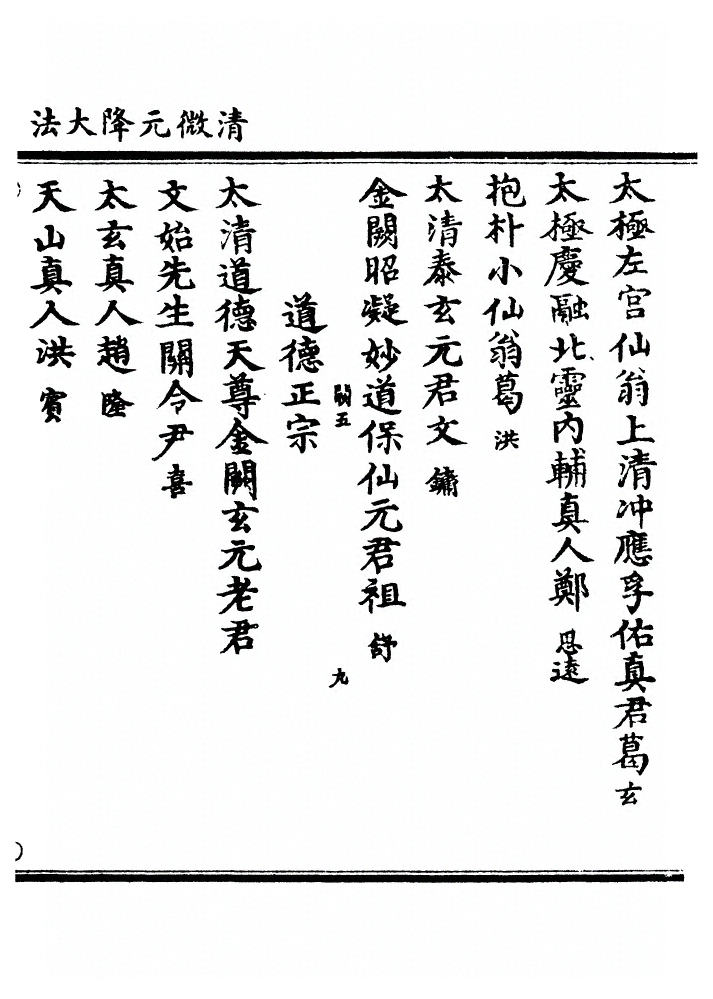 法大降元微清
太極左宮仙翁上清冲應孚佑真君葛玄
太極慶融北靈內輔真人鄭思遠
抱朴小仙翁葛洪
太清泰玄元君文鏞
金闕昭凝妙道保仙元君祖舒
五 九
道德正宗
太清道德天尊金闕玄元老君
文始先生關令尹喜
太玄真人趙隆
天山真人洪賓